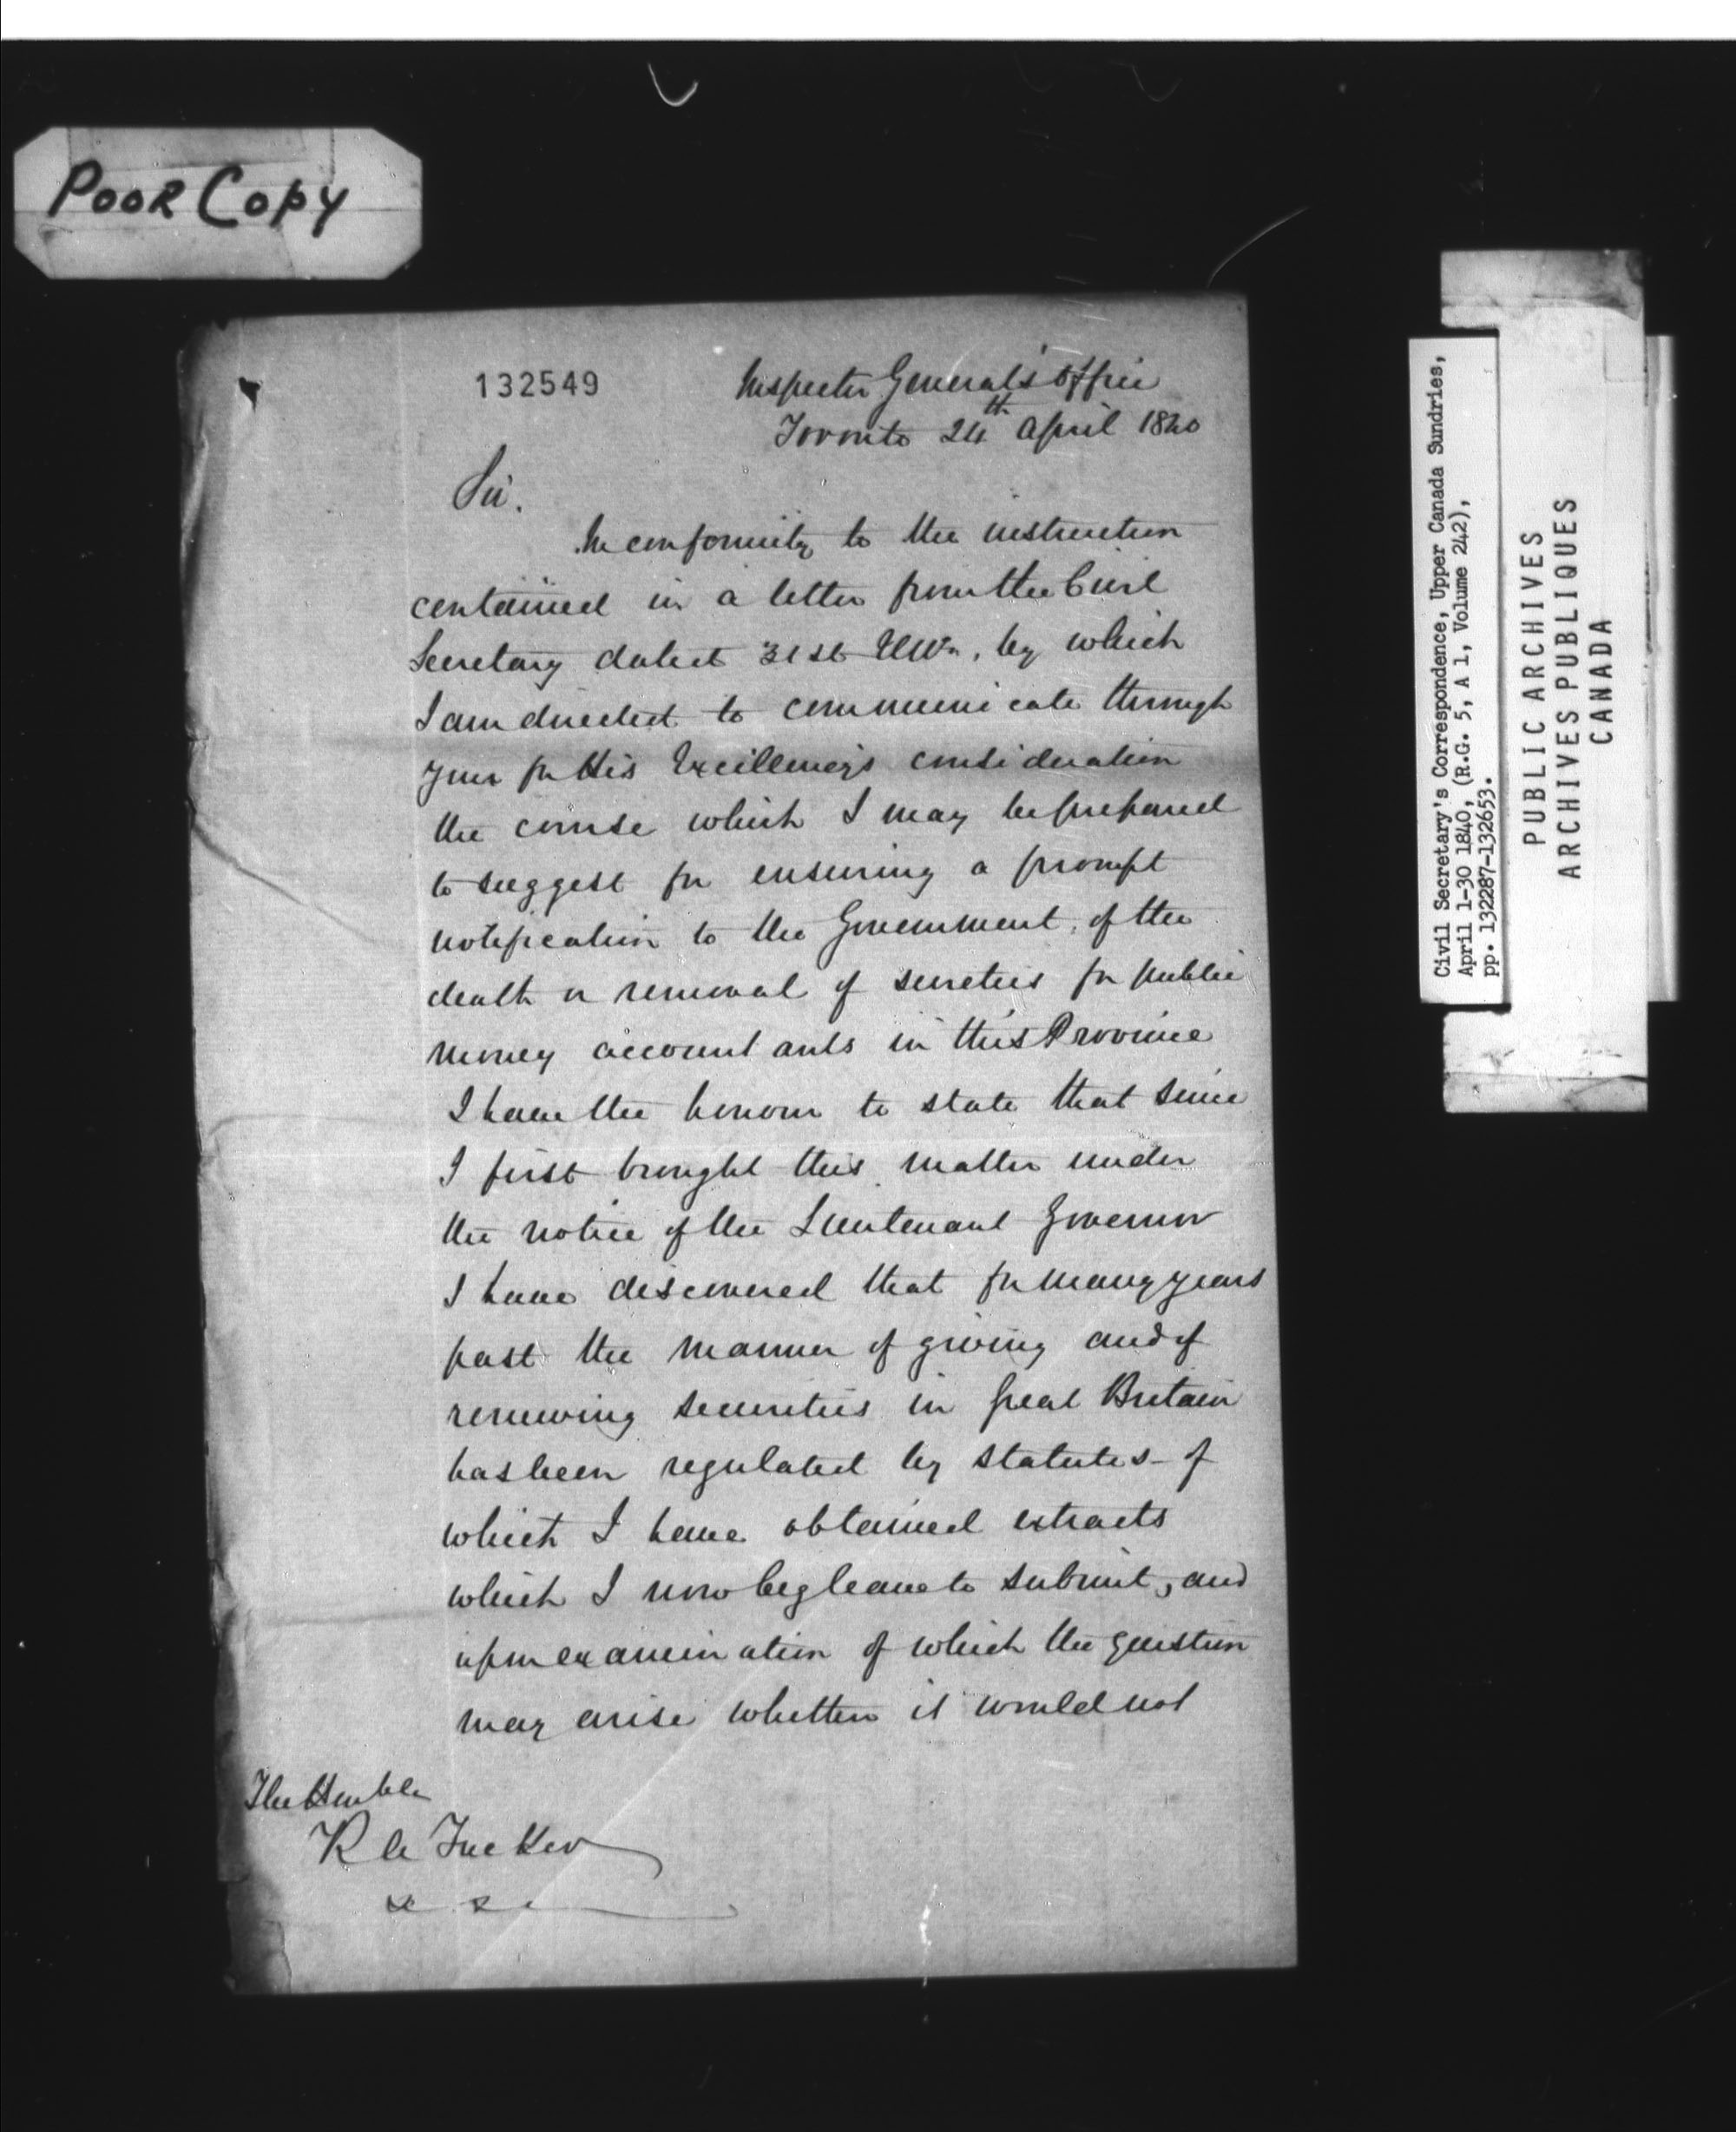 POOR COPY
132549
Inspector General's Office
Toronto 24th April 1840
Sir.
In conformity to the instruction
contained in a letter from the Civil
Secretary dated 31st Ulto., by which
I am directed to communicate through
you for His Excellency's consideration
the course which I may be prepared
to suggest for ensuring a prompt
notification to the Government, of the
death or removal of sureties for public
money accountants in this Province
I have the honour to state that since
I first brought this matter under
the notice of the Lieutenant Governor
I have discovered that for many years
past the manner of giving and of
renewing securities in Great Britain
has been regulated by statutes of
which I have obtained extracts
which I now beg leave to submit, and
upon examination of which the question
may arise whether it would not
The Honble
R A Tucker
Civil Secretary's Correspondence, Upper Canada Sundries,
April 1-30 1840, (R.G. 5, A 1, Volume 242),
pp. 132287-132653.
PUBLIC ARCHIVES
ARCHIVES PUBLIQUES
CANADA